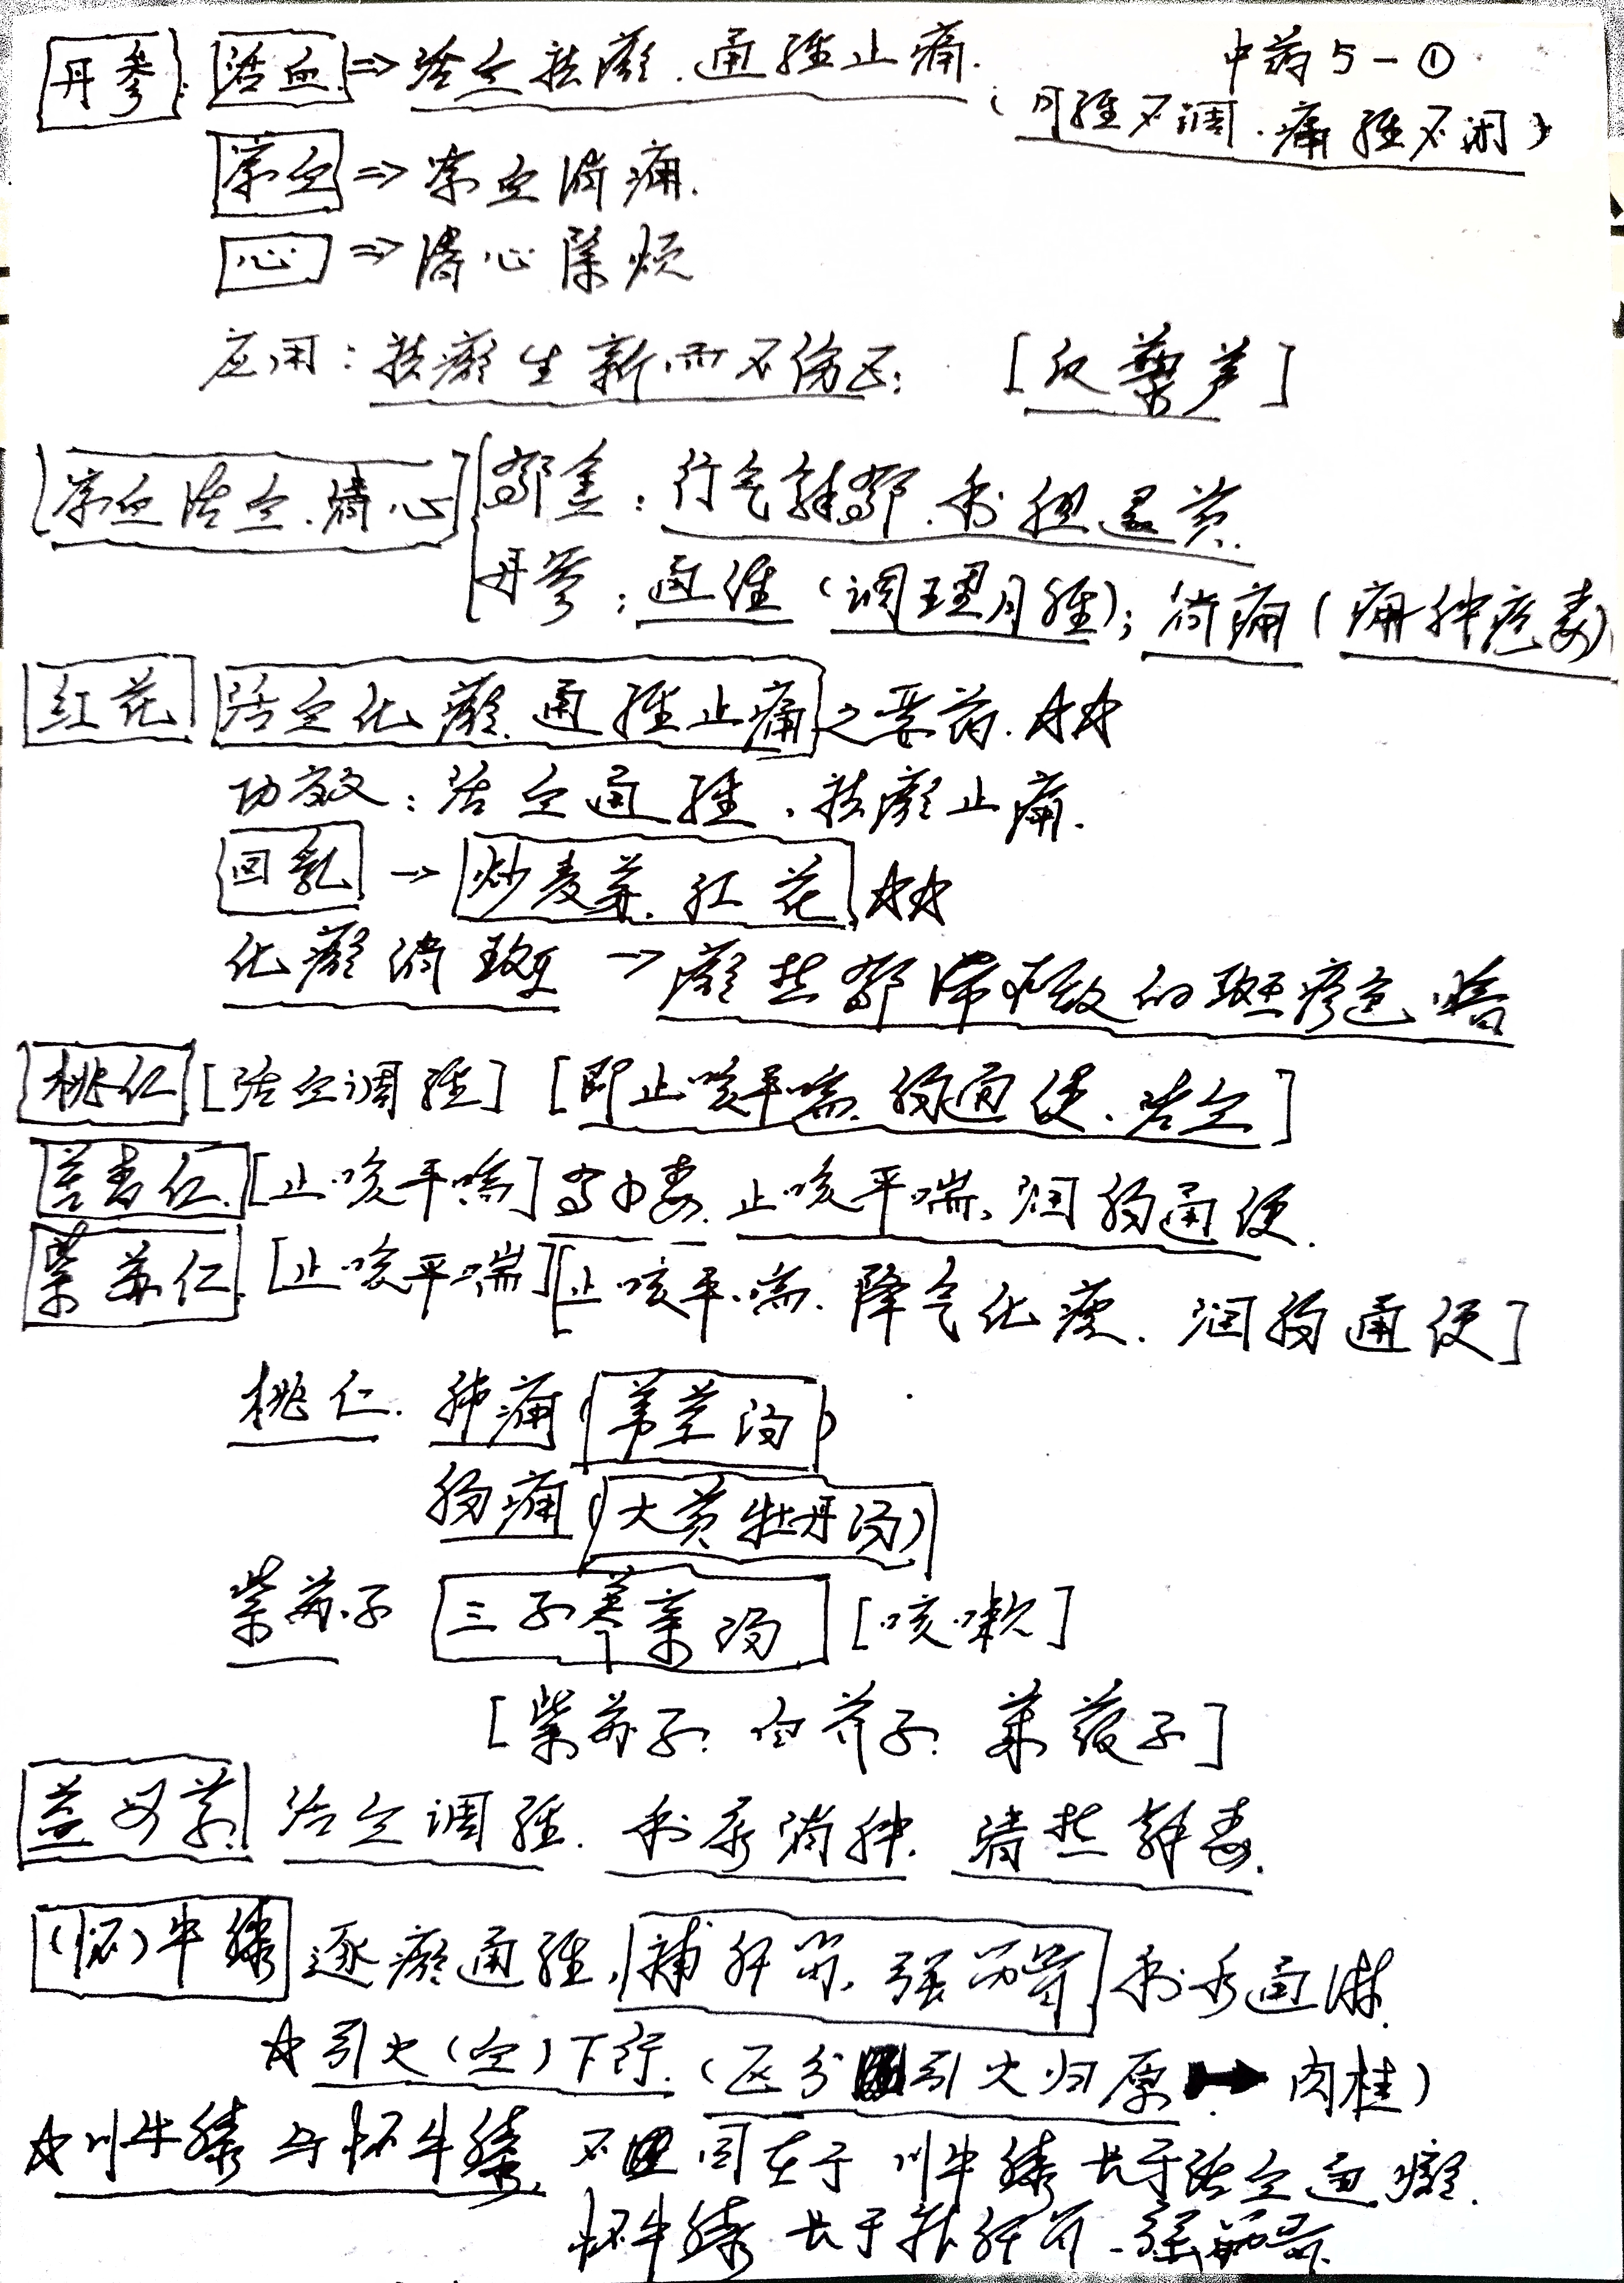 丹参. 活血 ⇒ 活血祛瘀. 通经止痛. 中药5-①
(月经不调. 痛经不闭)
凉血 ⇒ 凉血消痈.
心 ⇒ 清心除烦
应用: 祛瘀生新而不伤正; [反藜芦]
凉血活血. 清心
郁金: 行气解郁. 利胆退黄.
丹参: 通经 (调理月经); 消痈 (痈肿疮毒)
红花 活血化瘀. 通经止痛之要药. ☆☆
功效: 活血通经、祛瘀止痛.
回乳 → 炒麦芽. 红花 ☆☆
化瘀消斑 → 瘀热郁滞所致的斑疹色暗
桃仁 [活血调经] [即止咳平喘. 肠通便. 活血]
苦杏仁. [止咳平喘] 有小毒. 止咳平喘、润肠通便.
紫苏仁. [止咳平喘] [止咳平喘. 降气化痰. 润肠通便]
桃仁. 肺痈 (苇茎汤)
肠痈 (大黄牡丹汤)
紫苏子 三子养亲汤 [咳嗽]
[紫苏子. 白芥子. 莱菔子]
益母草. 活血调经. 利尿消肿. 清热解毒.
(怀)牛膝 逐瘀通经, 补肝肾. 强筋骨 利水通淋.
☆引火(血)下行. (区分引火归原 → 肉桂)
☆川牛膝与怀牛膝. 不同在于川牛膝长于活血通瘀.
怀牛膝长于补肝肾. 强筋骨.